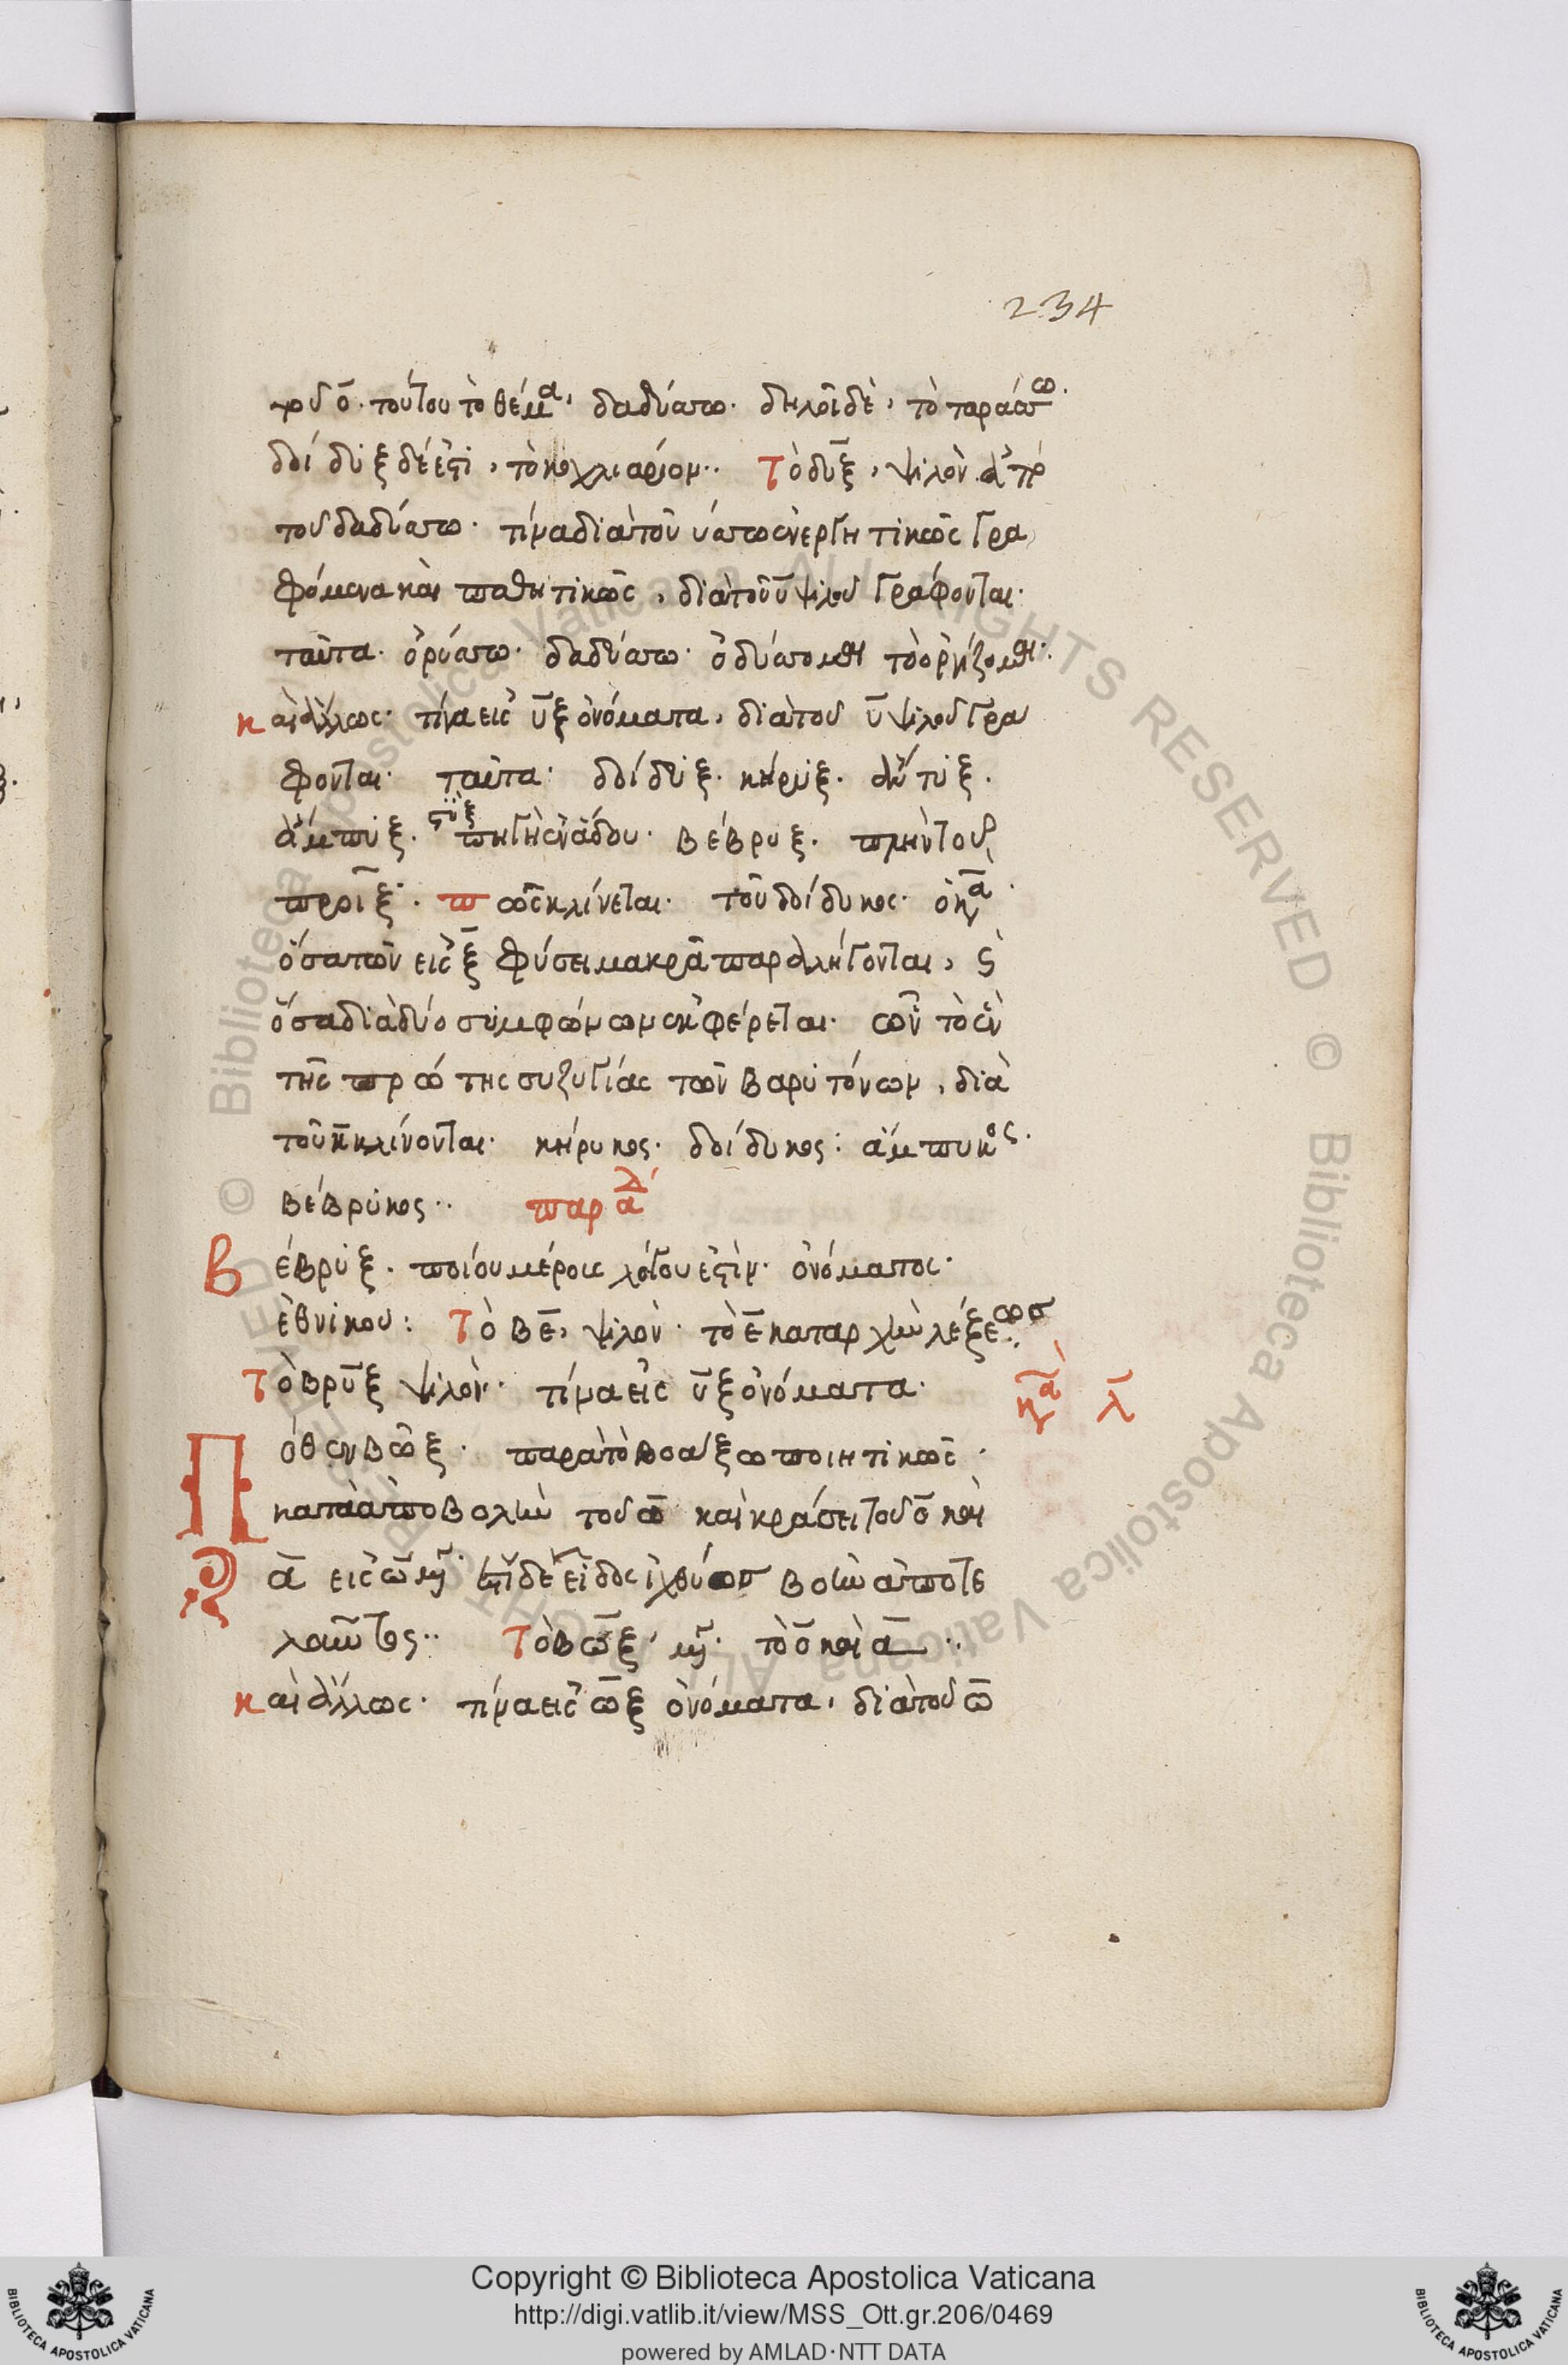 234
του ο̅. τούτου τὸ θέμα, δαδύσσω. δηλοῖ δὲ, τὸ ταράσσω.
δοίδυξ δέ ἐστι, τὸ κοχλιάριον.. Τὸ δυ̅ξ, ψιλὸν ἀπὸ
τοῦ δαδύσσω. τίνα διὰ τοῦ ύσσω ἐνεργητικῶς γρα
φόμενα καὶ παθητικῶς, διὰ τοῦ υ̅ ψιλοῦ γράφονται.
ταῦτα. ὀρύσσω. δαδύσσω. ὀδύσσομαι τὸ ὀργίζομαι.
καὶ ἄλλως. τίνα εἰς υ̅ξ ὀνόματα, διὰ τοῦ υ̅ ψιλοῦ γρα
φονται. ταῦτα. δοίδυξ. κήρυξ. ἄντυξ.
ἄμπυξ. στὺξ πηγὴ ἐν ἅδου. βέβρυξ. πλὴν τοῦ
προῒξ. πῶς κλίνεται. τοῦ δοίδυκος. ὁ κα̅.
ὅσα τῶν εἰς ξ̅ φύσει μακρᾶ παραλήγονται, ϛ̀
ὅσα διὰ δύο συμφώνων ἐκφέρεται. ὧν τὸ ἓν
τῆς πρώτης συζυγίας τῶν βαρυτόνων, διὰ
τοῦ κ̅ κλίνονται. κήρυκος. δοίδυκος: ἄμπυκος.
βέβρυκος.. παραλ
Βέβρυξ. ποίου μέρους λόγου ἐστίν. ὀνόματος.
ἐθνικοῦ: Τὸ βε̅, ψιλόν. τὸ ε̅ κατ αρχὴν λέξεως.
Τὸ βρυ̅ξ ψιλόν. τίνα εἰς υ̅ξ ὀνόματα.
κα̅ λ̅
Πόθεν βῶξ. παρὰ τὸ βοάξω ποιητικῶς.
κατὰ ἀποβολὴν τοῦ ω̅ καὶ κράσει τοῦ ο̅ καὶ
α̅ εἰς ω̅ μέγα. ἔστι δὲ εἶδος ἰχθύος βοὴν ἀποτε
λοῦντος.. Τὸ βω̅ξ, μέγα. τὸ ο̅ καὶ α̅..
καὶ ἄλλως. τίνα εἰς ω̅ξ ὀνόματα, διὰ τοῦ ω̅
Copyright © Biblioteca Apostolica Vaticana
http://digi.vatlib.it/view/MSS_Ott.gr.206/0469
powered by AMLAD·NTT DATA
BIBLIOTECA APOSTOLICA VATICANA
BIBLIOTECA APOSTOLICA VATICANA
© Biblioteca Apostolica Vaticana ALL RIGHTS RESERVED © Biblioteca Apostolica Vaticana ALL RIGHTS RESERVED